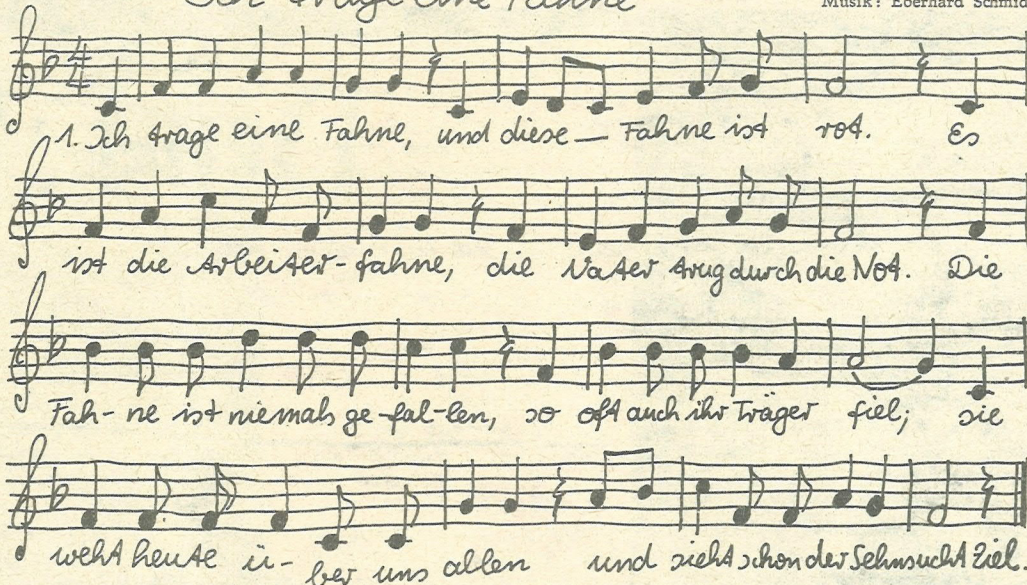 Ich trage eine Fahne
Musik: Eberhard Schmid
1. Ich trage eine Fahne, und diese — Fahne ist rot. Es
ist die Arbeiter-fahne, die Vater trug durch die Not. Die
Fah-ne ist niemals ge-fal-len, so oft auch ihr Träger fiel; sie
weht heute ü-ber uns allen und sieht schon der Sehnsucht Ziel.